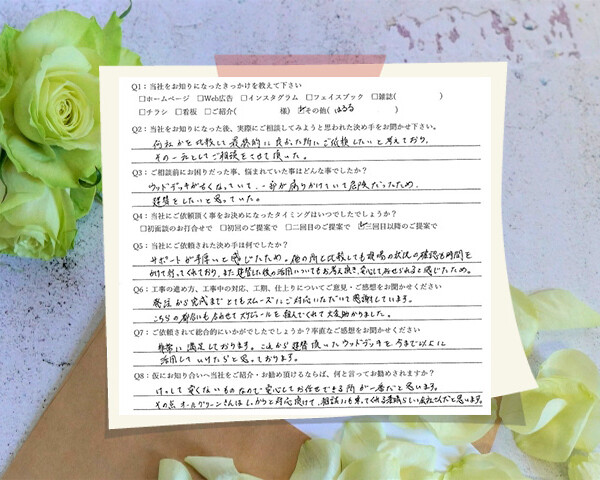 Q1：当社をお知りになったきっかけを教えて下さい
□ホームページ □Web広告 □インスタグラム □フェイスブック □雑誌( )
□チラシ □看板 □ご紹介( 様) ☑その他( はるる )
Q2：当社をお知りになった後、実際にご相談してみようと思われた決め手をお聞かせ下さい。
何社かを比較して最終的に良かった所にご依頼したいと考えており、
その一社としてご相談をさせて頂いた。
Q3：ご相談前にお困りだった事、悩まれていた事はどんな事でしたか？
ウッドデッキが古くなっていて、一部が腐りかけていて危険だったため、
建替をしたいと思っていた。
Q4：当社にご依頼頂く事をお決めになったタイミングはいつでしたでしょうか？
□初面談のお打合せで □初回のご提案で □二回目のご提案で ☑三回目以降のご提案で
Q5：当社にご依頼された決め手は何でしたか？
サポートが手厚いと感じたため。他の所と比較しても現場の状況の確認も時間を
かけて行ってくれており、また建替した後の活用についてもお考え頂き、安心してお任せられると感じたため。
Q6：工事の進め方、工事中の対応、工期、仕上りについてご意見・ご感想をお聞かせください
発注から完成までとてもスムーズにご対応いただいて感謝しています。
こちらの都合にも合わせてスケジュールを組んでくれて大変助かりました。
Q7：ご依頼されて総合的にいかがでしたでしょうか？率直なご感想をお聞かせください
非常に満足しております。これから建替頂いたウッドデッキを今まで以上に
活用していけたらと思っております。
Q8：仮にお知り合いへ当社をご紹介・お勧め頂けるならば、何と言ってお勧めされますか？
けっして安くないものなので安心してお任せできる所が一番だと思います。
その点オールグリーンさんはしっかりと対応頂けて、相談にも乗ってくれる素晴らしい会社さんだと思います。